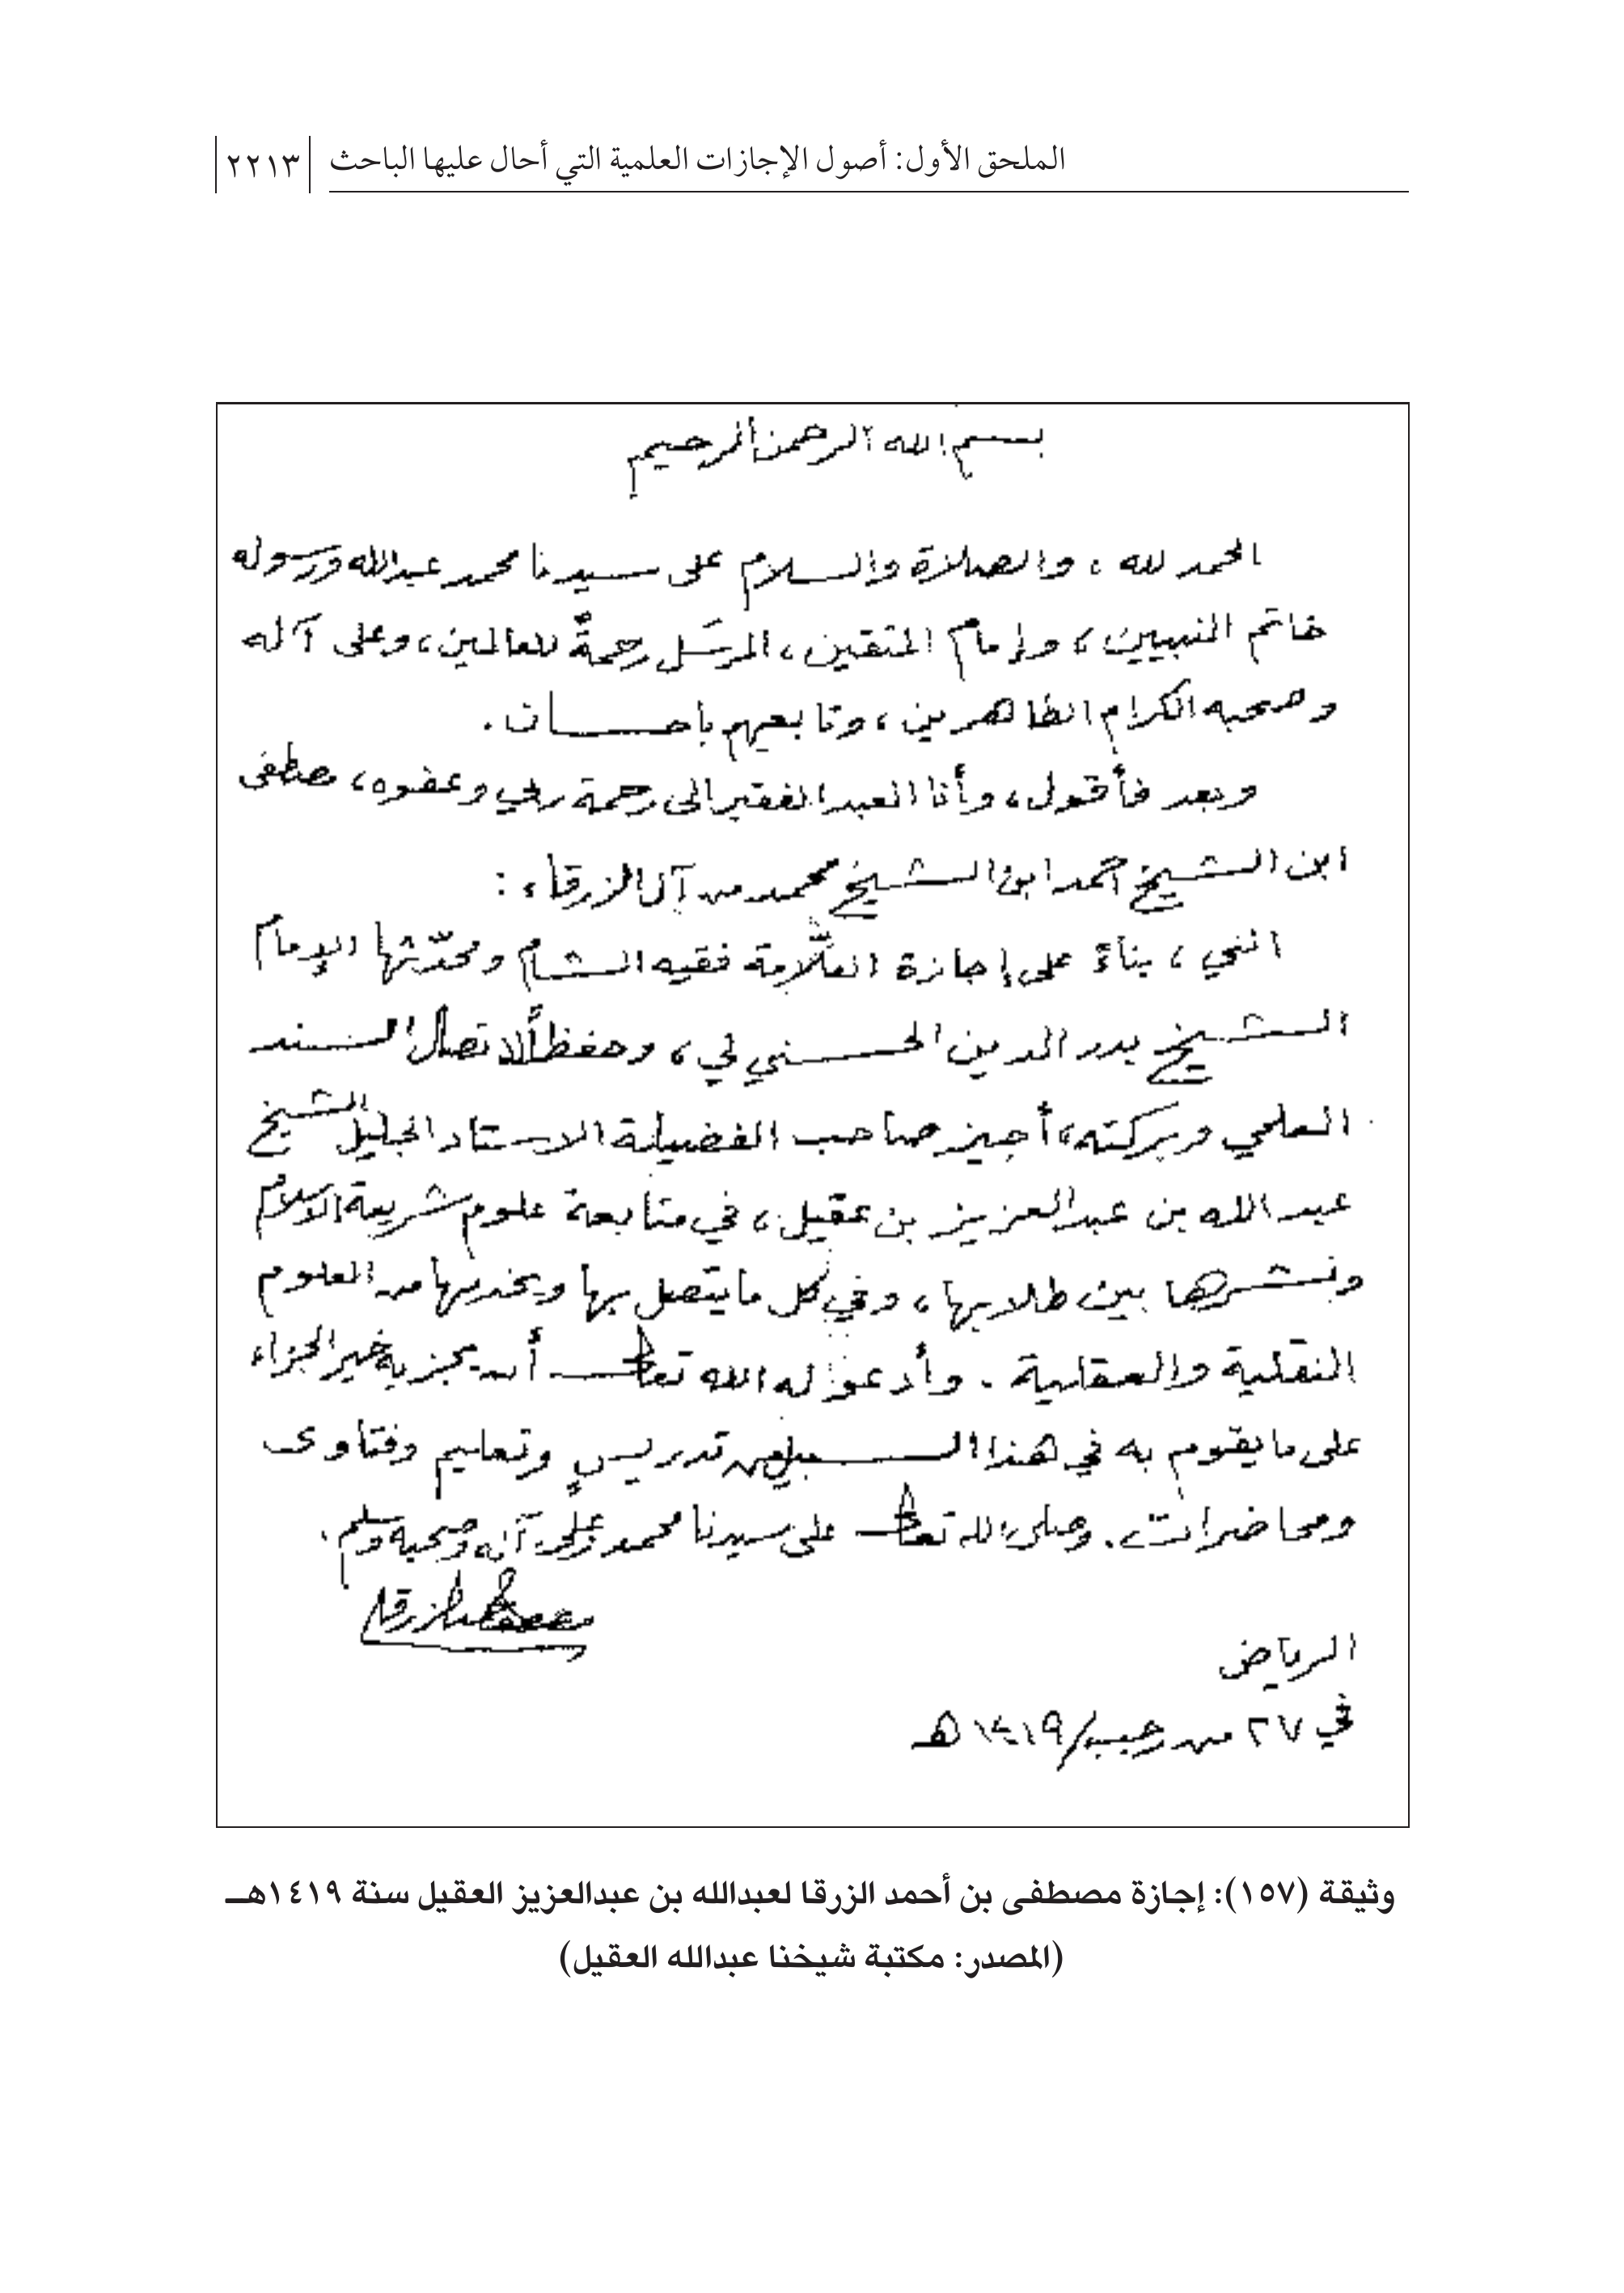 الملحق الأول: أصول الإجازات العلمية التي أحال عليها الباحث ٢٢١٣
بسم الله الرحمن الرحيم
الحمد لله ، والصلاة والسلام على سيدنا محمد عبدالله ورسوله
خاتم النبيين ، وإمام المتقين ، المرسَل رحمةً للعالمين ، وعلى آله
وصحبه الكرام الطاهرين ، وتابعيهم بإحسان .
وبعد فأقول ، وأنا العبد الفقير الى رحمة ربي وعفوه ، مصطفى
ابن الشيخ احمد ابن الشيخ محمد من آل الزرقاء :
انني ، بناءً على إجازة العلّامة فقيه الشام ومحدّثها الإمام
الشيخ بدر الدين الحسني لي ، وحفظاً لاتصال السند
العلمي وبركته ، أجيز صاحب الفضيلة الاستاذ الجليل الشيخ
عبد الله بن عبد العزيز بن عقيل ، في متابعة علوم شريعة الاسلام
ونشرها بين طلابها ، وفي كل ما يتصل بها ويخدمها من العلوم
النقلية والعقلية . وأدعو له الله تعالى أن يجزيه خير الجزاء
على ما يقوم به في هذا السبيل من تدريسٍ وتعليم وفتاوى
ومحاضرات . وصلى الله تعالى على سيدنا محمد وعلى آله وصحبه وسلم .
مصطفى الزرقا
الرياض
في ٢٧ من رجب/١٤١٩ هـ
وثيقة (١٥٧): إجازة مصطفى بن أحمد الزرقا لعبدالله بن عبدالعزيز العقيل سنة ١٤١٩هـ
(المصدر: مكتبة شيخنا عبدالله العقيل)